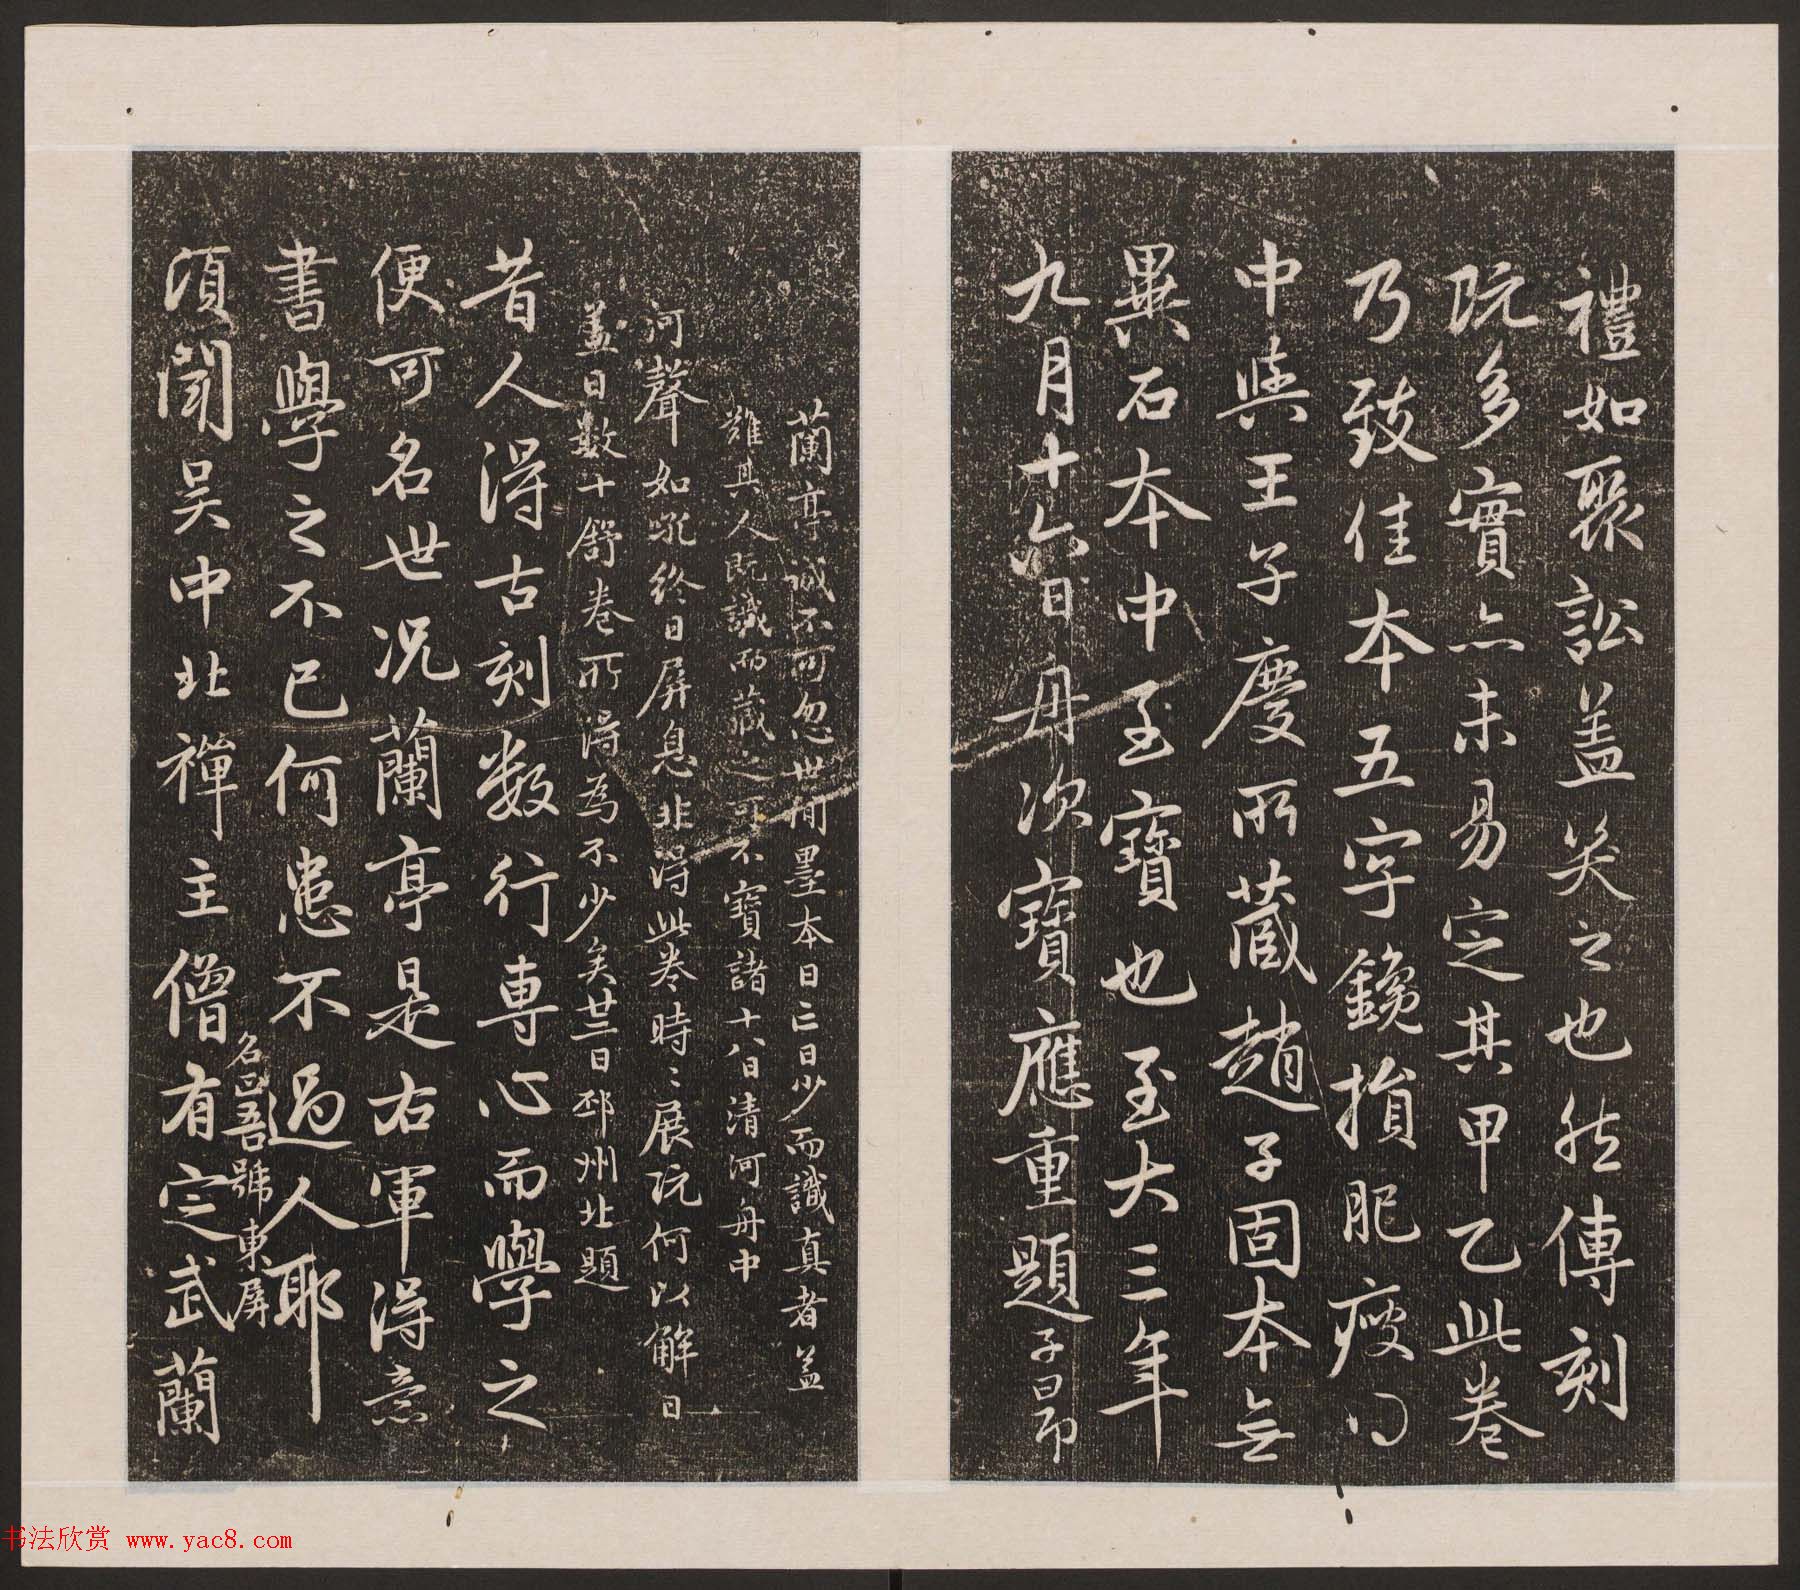 禮如聚訟蓋笑之也然傳刻
既多實亦未易定其甲乙此卷
乃致佳本五字鑱損肥瘦得
中與王子慶所藏趙子固本無
異石本中至寶也至大三年
九月十六日舟次寶應重題子昂
蘭亭誠不可忽世間墨本日亡日少而識真者蓋
難其人既識而藏之可不寶諸十八日清河舟中
河聲如吼終日屏息非得此卷時〻展玩何以解日
蓋日數十舒卷所得為不少矣廿二日邳州北題
昔人得古刻數行專心而學之
便可名世況蘭亭是右軍得意
書學之不已何患不過人耶
頃聞吳中北禪主僧有定武蘭
名正吾號東屏
书法欣赏 www.yac8.com